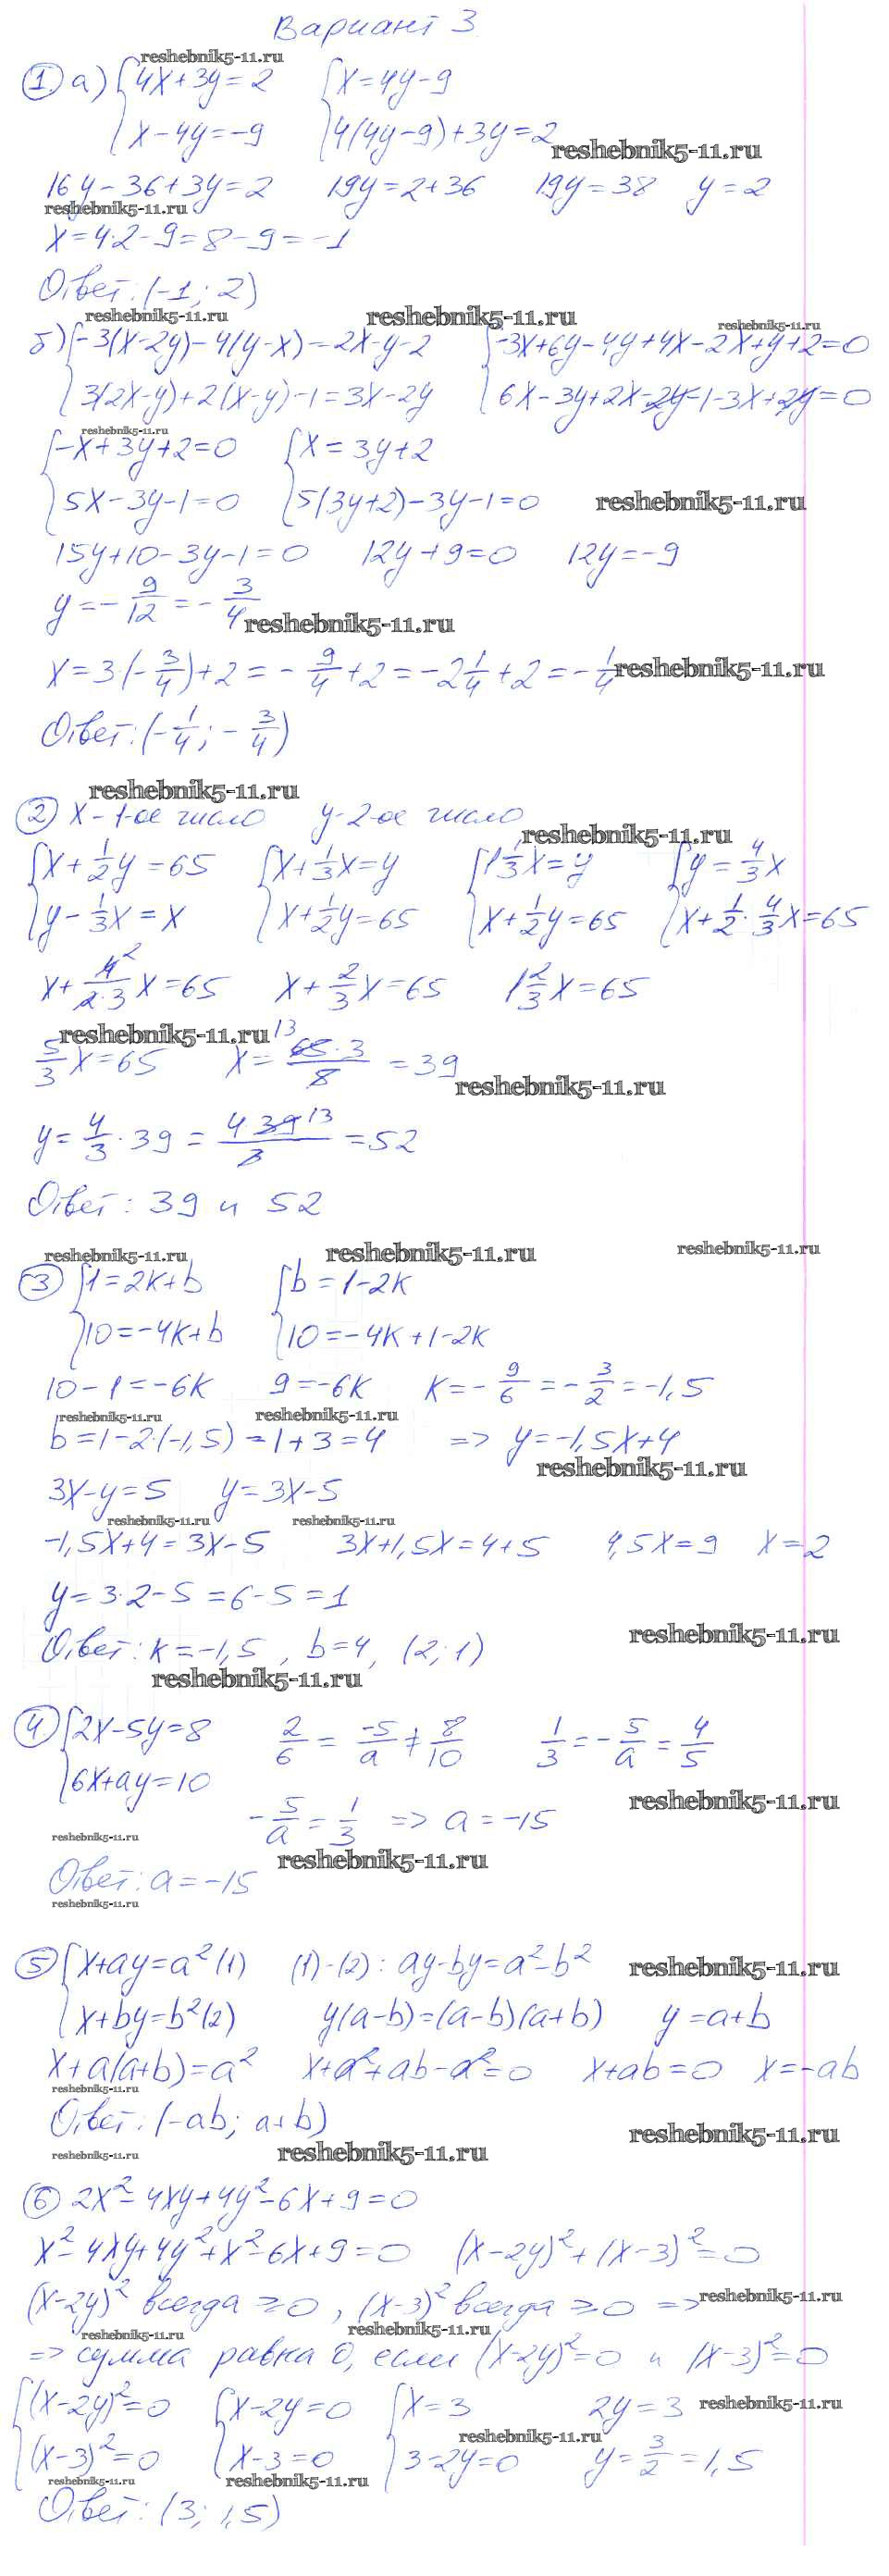 Вариант 3
reshebnik5-11.ru
① а) {4x+3y=2 {x=4y-9
x-4y=-9 4(4y-9)+3y=2
reshebnik5-11.ru
16y-36+3y=2 19y=2+36 19y=38 y=2
reshebnik5-11.ru
x=4·2-9=8-9=-1
Ответ: (-1; 2)
reshebnik5-11.ru reshebnik5-11.ru reshebnik5-11.ru
б) {-3(x-2y)-4(y-x)=2x-y-2 {-3x+6y-4y+4x-2x+y+2=0
3(2x-y)+2(x-y)-1=3x-2y 6x-3y+2x-2y-1-3x+2y=0
reshebnik5-11.ru
{-x+3y+2=0 {x=3y+2
5x-3y-1=0 5(3y+2)-3y-1=0 reshebnik5-11.ru
15y+10-3y-1=0 12y+9=0 12y=-9
y=-9/12=-3/4
reshebnik5-11.ru
x=3·(-3/4)+2=-9/4+2=-2 1/4+2=-1/4 reshebnik5-11.ru
Ответ: (-1/4; -3/4)
reshebnik5-11.ru
② x-1-ое число y-2-ое число
reshebnik5-11.ru
{x+1/2y=65 {x+1/3x=y {1 1/3x=y {y=4/3x
y-1/3x=x x+1/2y=65 x+1/2y=65 x+1/2·4/3x=65
x+4²/2·3x=65 x+2/3x=65 1 2/3x=65
reshebnik5-11.ru
5/3x=65 x=65¹³·3/5=39
reshebnik5-11.ru
y=4/3·39=4·39¹³/3=52
Ответ: 39 и 52
reshebnik5-11.ru reshebnik5-11.ru reshebnik5-11.ru
③ {1=2k+b {b=1-2k
10=-4k+b 10=-4k+1-2k
10-1=-6k 9=-6k k=-9/6=-3/2=-1,5
reshebnik5-11.ru reshebnik5-11.ru
b=1-2·(-1,5)=1+3=4 => y=-1,5x+4
reshebnik5-11.ru
3x-y=5 y=3x-5
reshebnik5-11.ru reshebnik5-11.ru
-1,5x+4=3x-5 3x+1,5x=4+5 4,5x=9 x=2
y=3·2-5=6-5=1
Ответ: k=-1,5, b=4, (2; 1) reshebnik5-11.ru
reshebnik5-11.ru
④ {2x-5y=8 2/6=-5/a≠8/10 1/3=-5/a=4/5
6x+ay=10
reshebnik5-11.ru
-5/a=1/3 => a=-15
reshebnik5-11.ru
reshebnik5-11.ru
Ответ: a=-15
reshebnik5-11.ru
⑤ {x+ay=a² (1) (1)-(2): ay-by=a²-b² reshebnik5-11.ru
x+by=b² (2) y(a-b)=(a-b)(a+b) y=a+b
x+a(a+b)=a² x+a²+ab-a²=0 x+ab=0 x=-ab
reshebnik5-11.ru
Ответ: (-ab; a+b)
reshebnik5-11.ru
reshebnik5-11.ru reshebnik5-11.ru
⑥ 2x²-4xy+4y²-6x+9=0
x²-4xy+4y²+x²-6x+9=0 (x-2y)²+(x-3)²=0
(x-2y)² всегда ≥0, (x-3)² всегда ≥0 => reshebnik5-11.ru
reshebnik5-11.ru reshebnik5-11.ru
=> сумма равна 0, если (x-2y)²=0 и (x-3)²=0
{(x-2y)²=0 {x-2y=0 {x=3 2y=3 reshebnik5-11.ru
reshebnik5-11.ru
(x-3)²=0 x-3=0 3-2y=0 y=3/2=1,5
reshebnik5-11.ru reshebnik5-11.ru
Ответ: (3; 1,5)